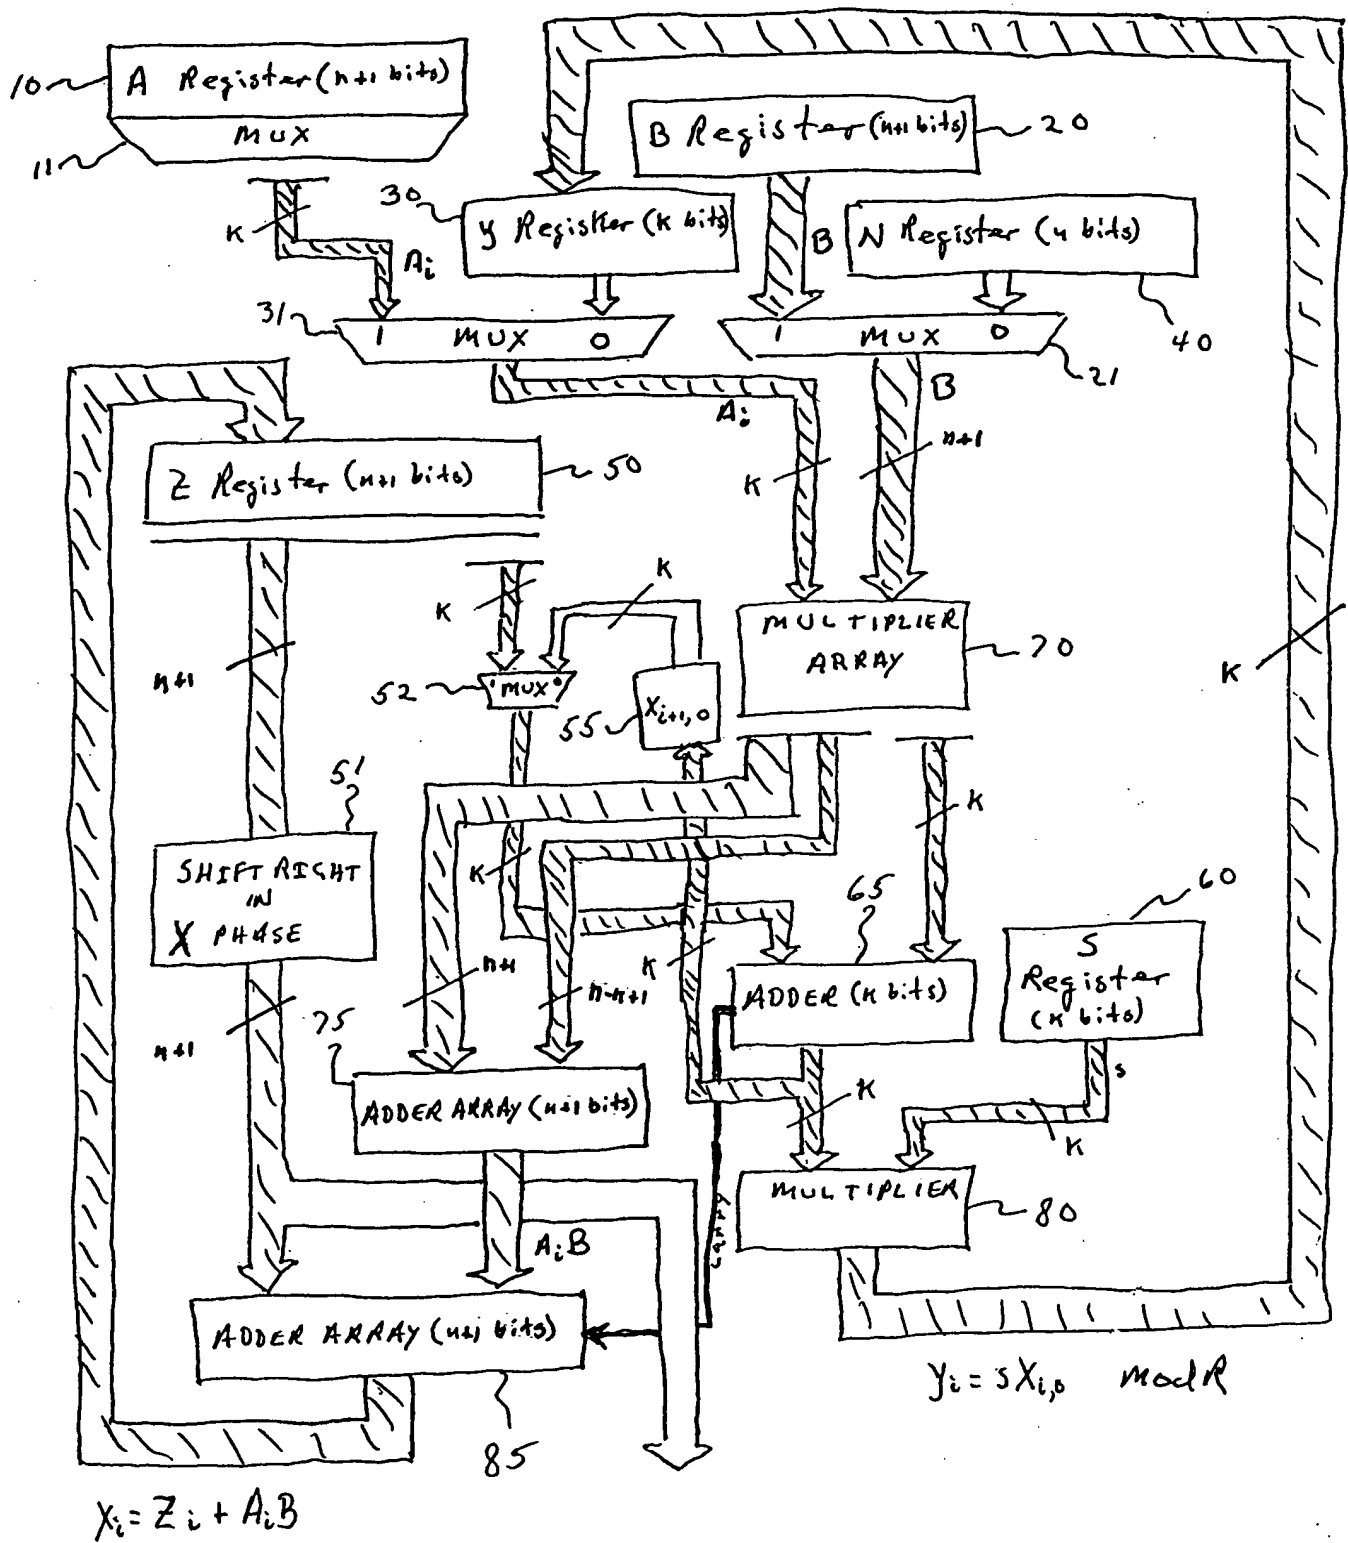 10
A Register (n+1 bits)
MUX
11
B Register (n+1 bits)
20
30
Y Register (K bits)
B
N Register (n bits)
40
K
Ai
31
1 MUX 0
1 MUX 0
21
Ai
B
n+1
K
Z Register (n+1 bits)
50
K
K
n+1
52
1 MUX 0
55
Xi+1,0
MULTIPLIER
ARRAY
70
K
51
SHIFT RIGHT
IN
X PHASE
K
K
65
60
n+1
n-k+1
K
ADDER (K bits)
S
Register
(K bits)
n+1
75
ADDER ARRAY (n+1 bits)
K
s
K
MULTIPLIER
80
carry
AiB
ADDER ARRAY (n+1 bits)
85
yi = s Xi,0 mod R
Xi = Zi + AiB